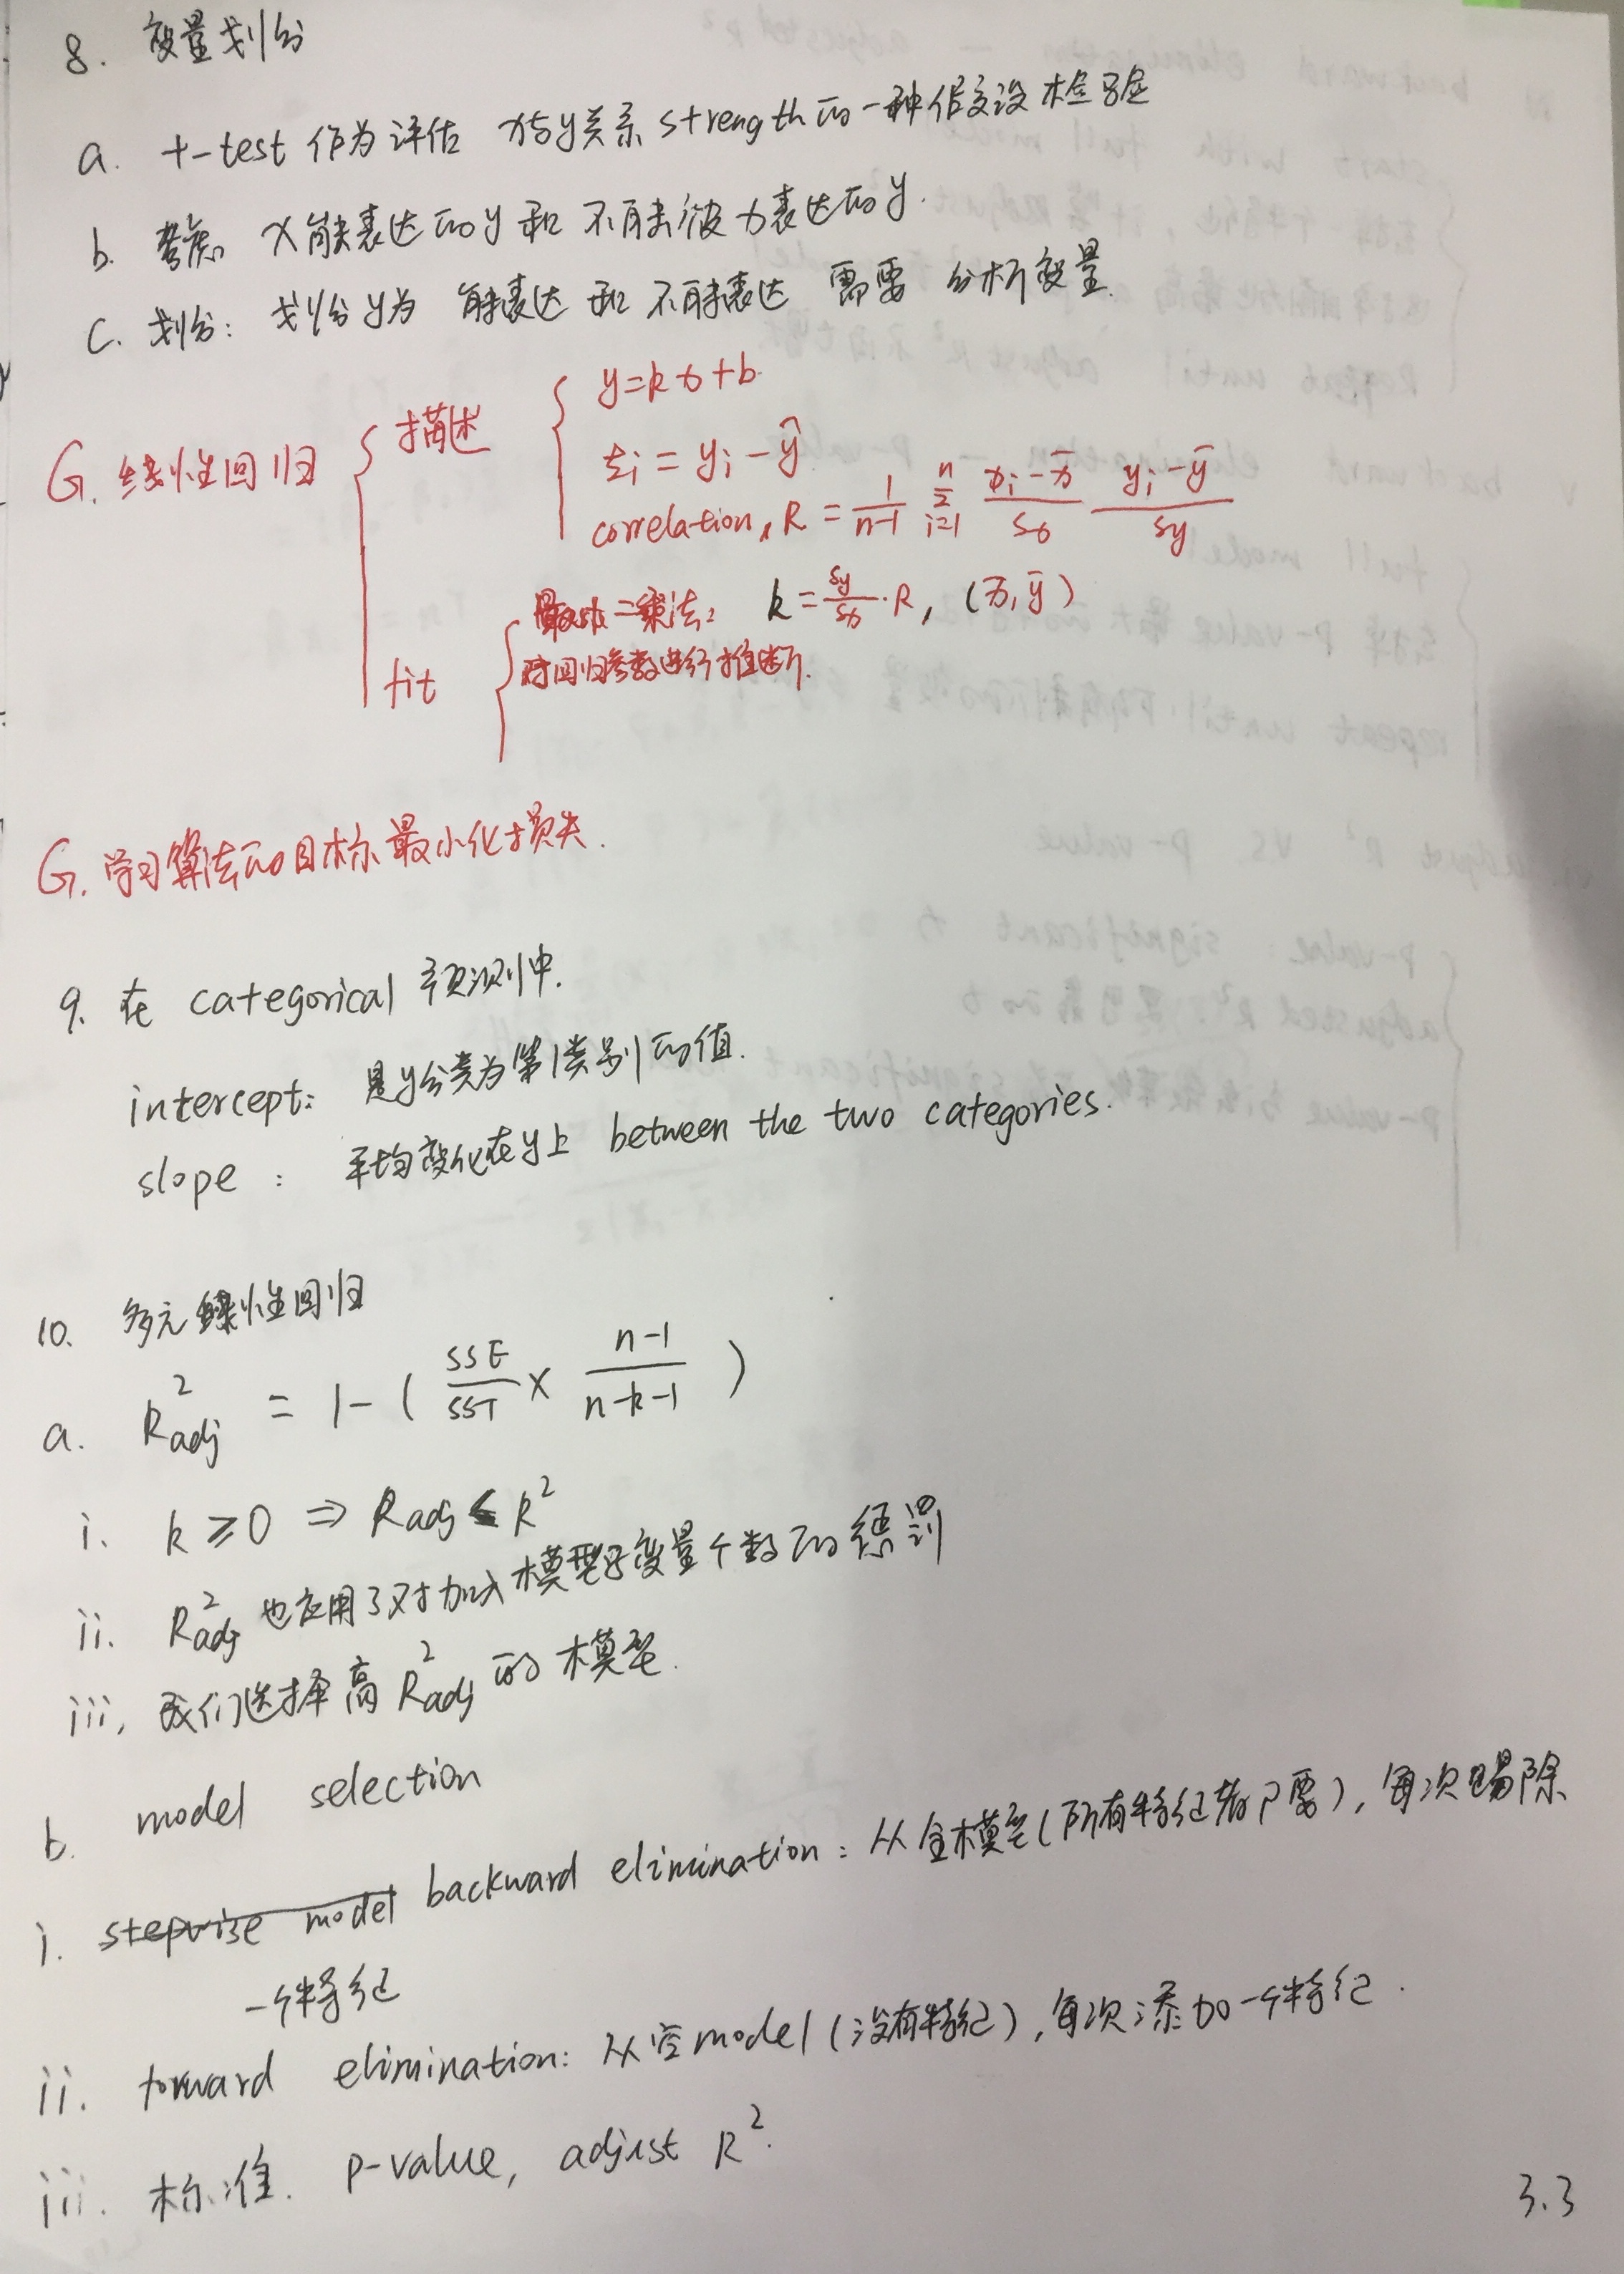 8. 变量划分
a. t-test 作为评估 x与y关系 strength的一种假设检验
b. 考虑 x能表达的y和不能被x表达的y.
c. 划分: 划分y为 能表达 和 不能表达 需要 分析变量.
G. 线性回归
描述
y=kx+b.
εi = yi - ŷ
correlation, R = 1/(n-1) Σ_{i=1}^{n} (xi - x̄)/sx (yi - ȳ)/sy
fit
最小二乘法: k = sy/sx · R, (x̄, ȳ)
对回归参数进行推断.
G. 学习算法的目标最小化损失.
9. 在 categorical 预测中.
intercept: 是y分类为第1类别的值.
slope: 平均变化在y上 between the two categories.
10. 多元线性回归
a. R²adj = 1-( SSE/SST × (n-1)/(n-k-1) )
i. k ≥ 0 ⇒ Radj ≤ R²
ii. R²adj 也应用了对加入模型变量个数的惩罚
iii, 我们选择高 R²adj 的模型.
b. model selection
i. stepwise model backward elimination: 从全模型(所有特征都要), 每次踢除
一个特征
ii. forward elimination: 从空model(没有特征), 每次添加一个特征.
iii. 标准. p-value, adjust R².
3.3